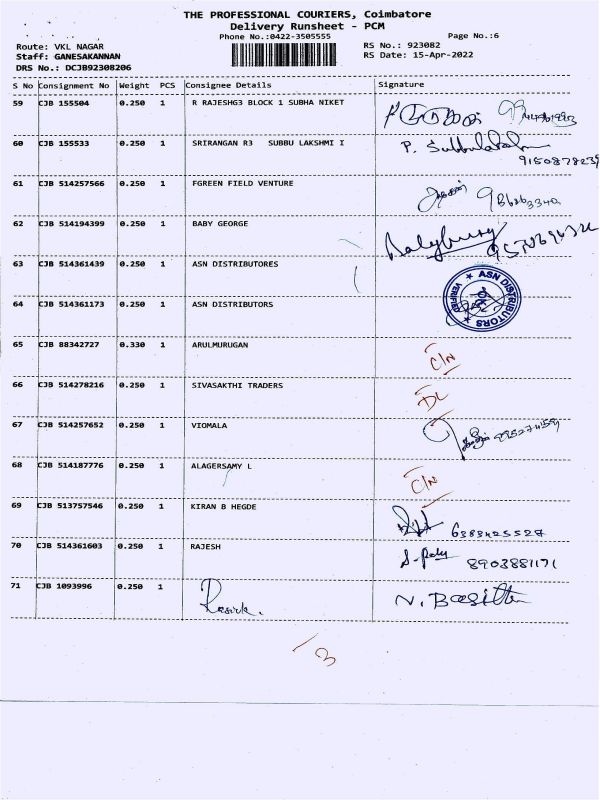 THE PROFESSIONAL COURIERS, Coimbatore
Delivery Runsheet - PCM
Phone No.:0422-3505555
Page No.:6
Route: VKL NAGAR
RS No.: 923082
Staff: GANESAKANNAN
RS Date: 15-Apr-2022
DRS No.: DCJB92308206
S No Consignment No Weight PCS Consignee Details Signature
59 CJB 155504 0.250 1 R RAJESHG3 BLOCK 1 SUBHA NIKET
60 CJB 155533 0.250 1 SRIRANGAN R3 SUBBU LAKSHMI I P. Subbulakshmi
9150878239
61 CJB 514257566 0.250 1 FGREEN FIELD VENTURE
62 CJB 514194399 0.250 1 BABY GEORGE
63 CJB 514361439 0.250 1 ASN DISTRIBUTORES
ASN DISTRIBUTORS VERIFIED
64 CJB 514361173 0.250 1 ASN DISTRIBUTORS
65 CJB 88342727 0.330 1 ARULMURUGAN C/N
66 CJB 514278216 0.250 1 SIVASAKTHI TRADERS DL
67 CJB 514257652 0.250 1 VIOMALA
68 CJB 514187776 0.250 1 ALAGERSAMY L C/N
69 CJB 513757546 0.250 1 KIRAN B HEGDE 6383425527
70 CJB 514361603 0.250 1 RAJESH 8903881171
71 CJB 1093996 0.250 1 N.
3